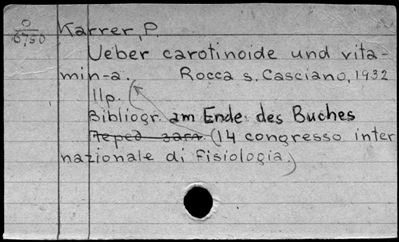 O
15750
Karrer, P.
Ueber carotinoide und vita-
min-a. Rocca s. Casciano, 1932
11p.
Bibliogr. am Ende des Buches
(14 congresso inter
nazionale di fisiologia)